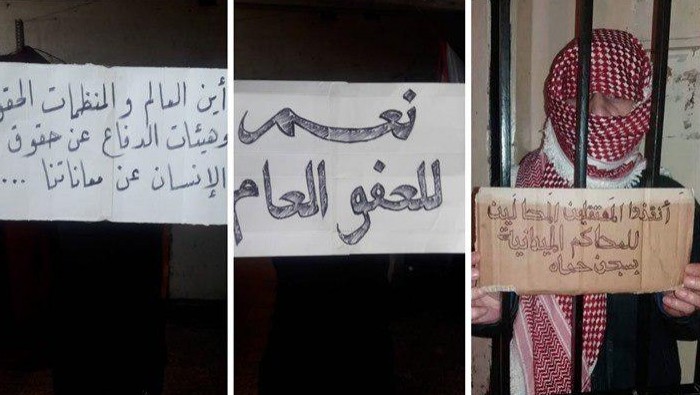 أين العالم والمنظمات
وهيئات الدفاع عن حقوق
الإنسان عن معاناتنا ...
نعم
للعفو العام
أنقذوا المعتقلين المحالين
للمحاكم الميدانية
بسجن حماه